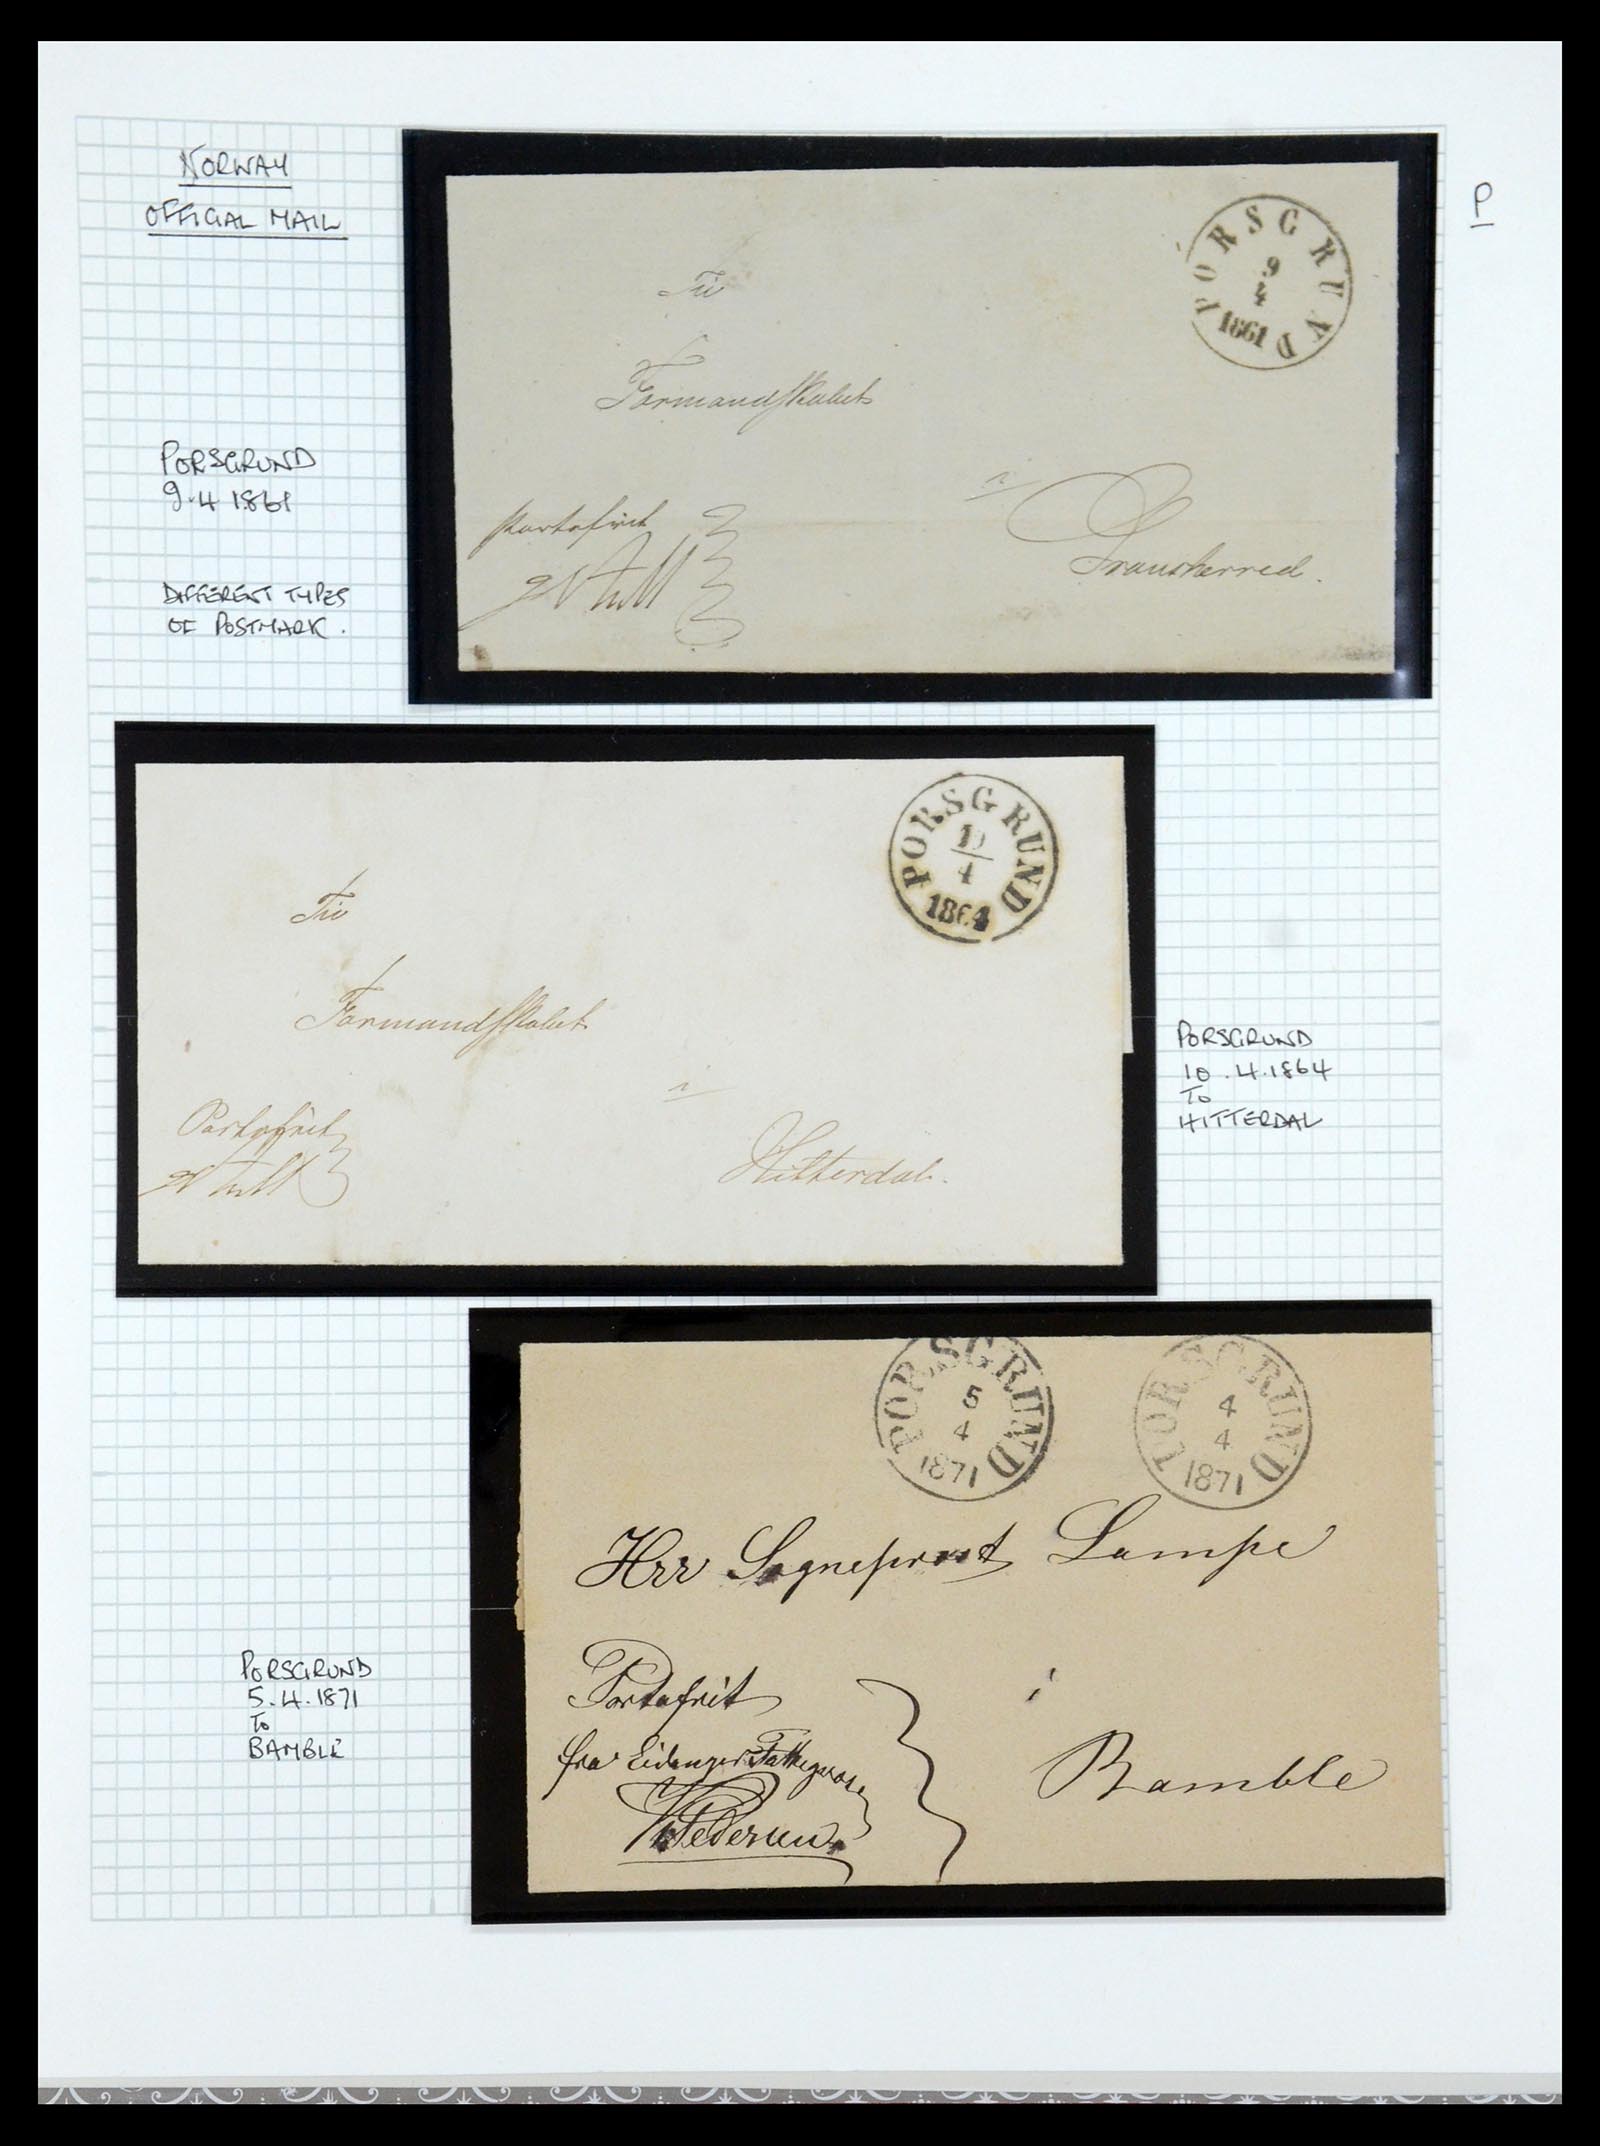 NORWAY
OFFICIAL MAIL
P
PORSGRUND
9
4
1861
Til
Formandskabet
i
Transherred.
Portofrit
PORSGRUND
9.4 1861
DIFFERENT TYPES
OF POSTMARK.
PORSGRUND
10
4
1864
Til
Formandskabet
i
Hitterdal.
Portofrit
PORSGRUND
10.4.1864
TO
HITTERDAL
PORSGRUND
5
4
1871
PORSGRUND
4
4
1871
Hrr Sogneprest Lampe
Portofrit
i
fra Eidanger
Bamble
PORSGRUND
5.4.1871
TO
BAMBLE